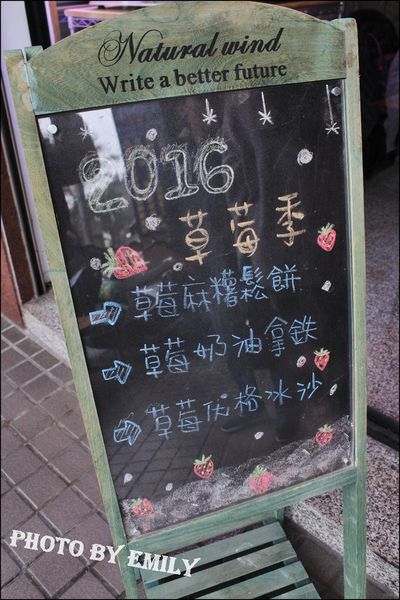 Natural wind
Write a better future
2016
草莓季
草莓麻糬鬆餅
草莓奶油拿鉄
草莓优格冰沙
PHOTO BY EMILY